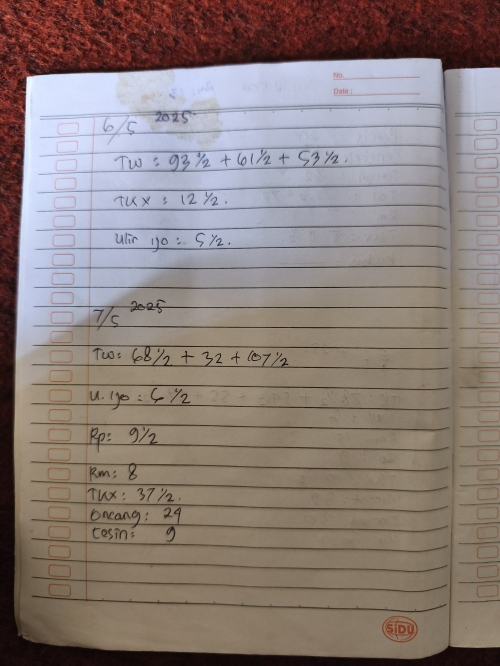 No.
Date:
6/5 2025
TW: 93 1/2 + 61 1/2 + 53 1/2.
TKX: 12 1/2.
Ulir ijo: 5 1/2.
7/5 2025
TW: 68 1/2 + 32 + 107 1/2
U. ijo: 5 1/2
Rp: 9 1/2
Rm: 8
TKX: 37 1/2.
Oncang: 24
Cosin: 9
SIDU